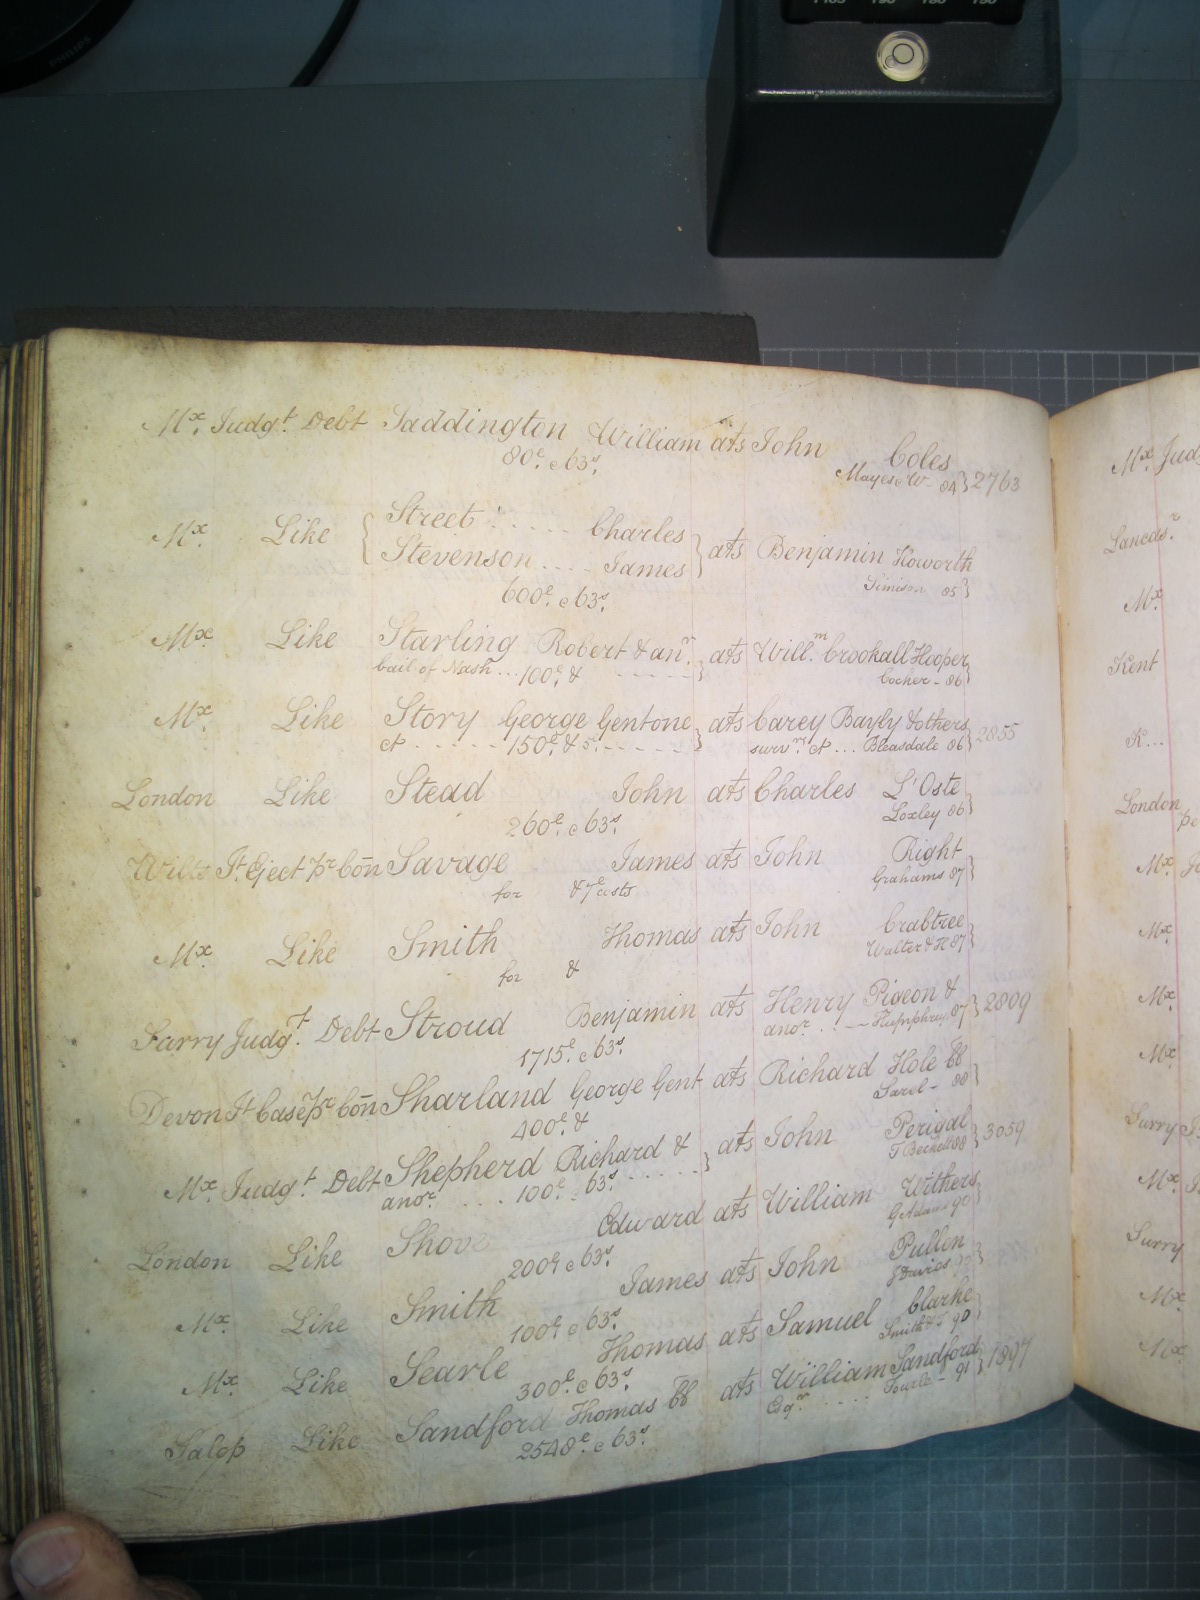 Mx. Judgt. Debt Saddington William ats John Coles
80£. & 63s. Mayes & W - 84} 2763
Mx. Like { Street ..... Charles
Stevenson .... James } ats Benjamin Howorth
600£. & 63s. Simison 85}
Mx. Like Starling Robert & anr. } ats Willm. Crookall Hooper
bail of Nash ... 100£. & ----- Cocher - 86}
Mx. Like Story George Gentone } ats Carey Bayly & others
&c ----- 150£. & 5s. ----- survrs. &c ... Bleasdale 86} 2855
London Like Stead John ats Charles L'Oste
260£. & 63s. Loxley 86}
Wilts Jt. Eject pr Con Savage James ats John Right
for & costs Grahams 87}
Mx. Like Smith Thomas ats John Crabtree
for & Walter & H 87}
Surry Judgt. Debt Stroud Benjamin ats Henry Pigeon &
1715£. & 63s. anor. ... Humphreys 87} 2809
Devon Jt Case pr Con Sharland George Gent ats Richard Hole
400£. & Sarel - 88}
Mx. Judgt. Debt Shepherd Richard & } ats John Perigal
anor. .... 100£. 63s. ..... T Beckett 88} 3059
London Like Shove Edward ats William Withers
200£ & 63s. G Adams 90}
Mx. Like Smith James ats John Pullen
100£ & 63s. J Davies
Mx. Like Searle Thomas ats Samuel Clarke
300£. & 63s. Smith & T 90}
Salop Like Sandford Thomas ats William Sandford
2548£. & 63s. Esqr. ..... 91} 1897
Mx. Jud
Lancasr.
Mx.
Kent
London
Mx.
Mx.
Mx.
Mx.
Surry
Mx.
Surry
Mx.
Mx.
PHILIPS